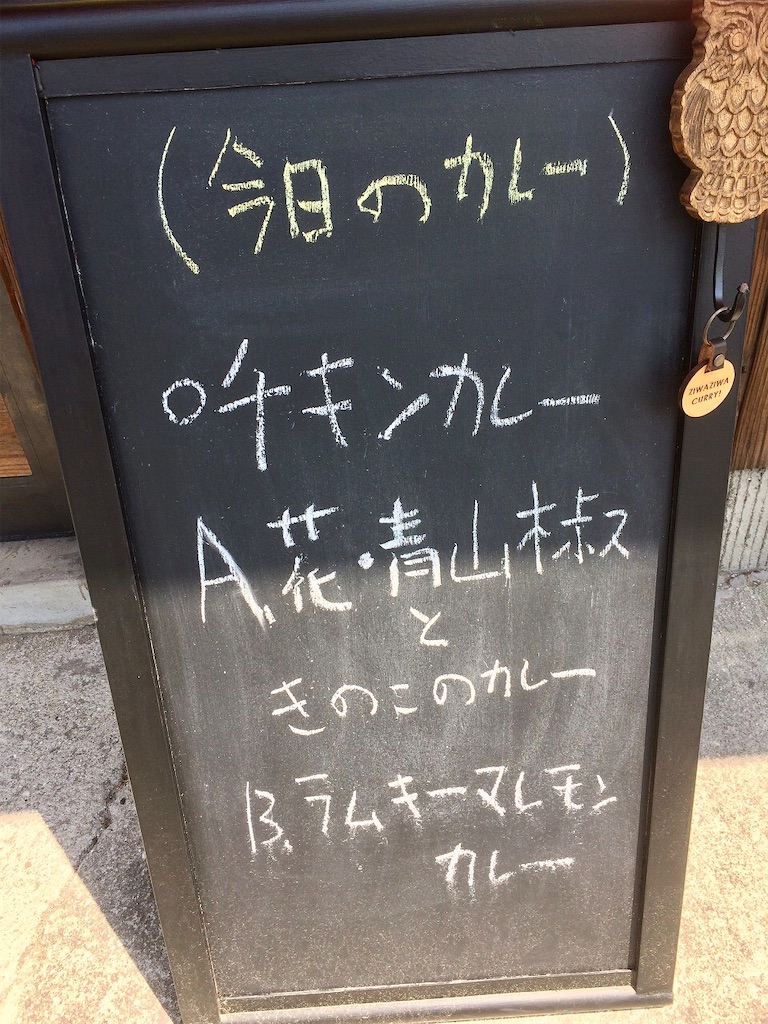 (今日のカレー)
○チキンカレー
A.花・青山椒
と
きのこのカレー
B.ラムキーマレモン
カレー
ZIWAZIWA
CURRY!